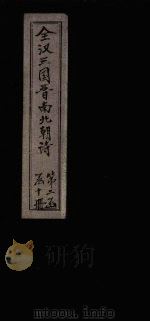 全汉三国晋南北朝诗
第二函
十册
研狗